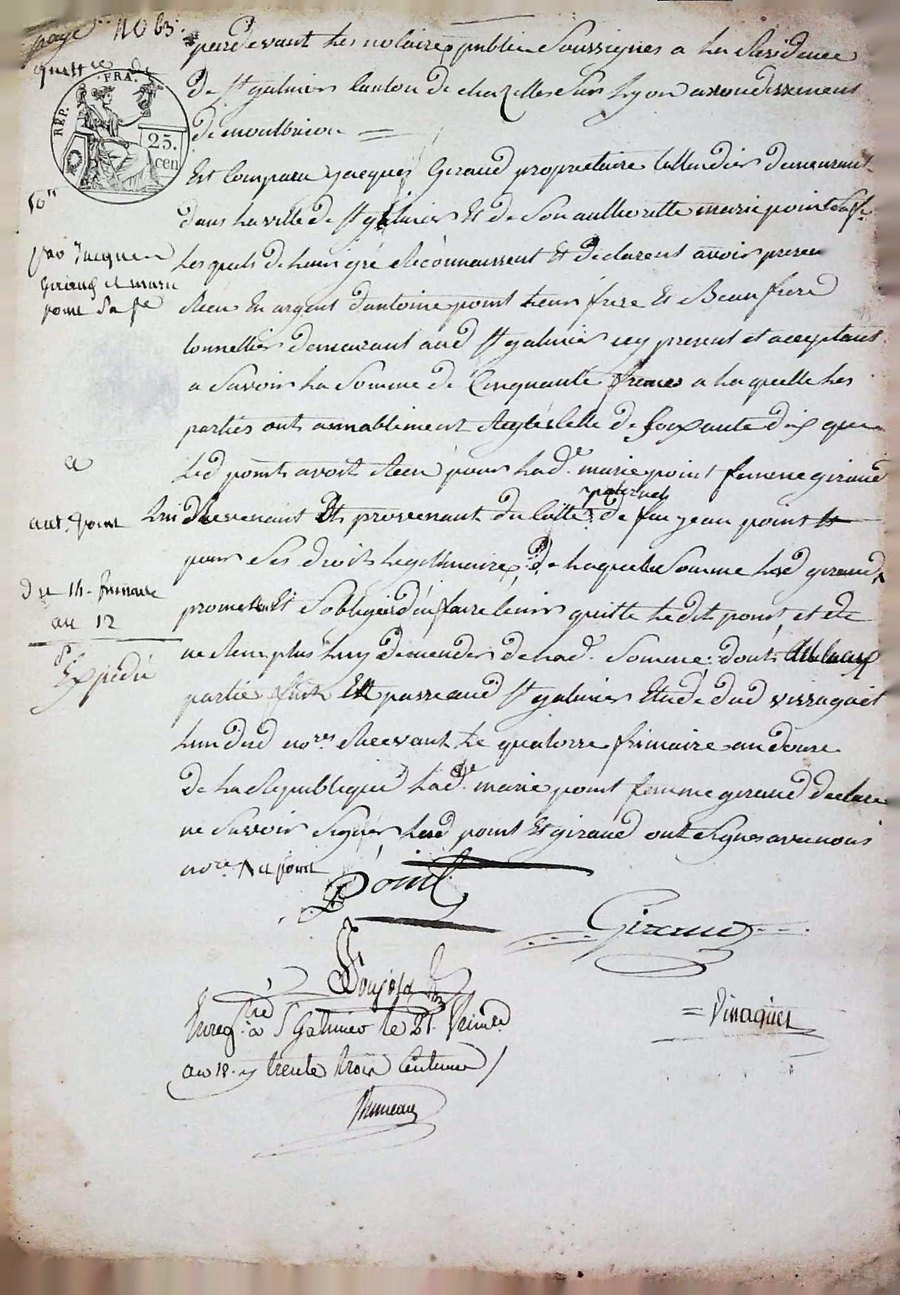 paye 110 bis.
quittce de
REP. FRA.
25. cen
pardevant Les notaires publics Soussignés a La Residence
de St galmier Canton de chazelles Sur Lyon arrondissement
de montbrison
Est Comparu jacques Giraud proprietaire demeurant
dans La ville de St galmier Et de Son authorité marie point Sa fe
Les quels de Leur gré Réconnaissent Et declarent avoir
Recu En argent d'antoine point Leur frere Et Beaufrere
tonnellier demeurant aud St galmier icy present et acceptant
a Savoir La Somme de Cinquante francs a Laquelle Les
parties ont amiablement Reglés Celle de soixante dix que
Led point avoit Recu pour Lad. marie point femme giraud
Lui Revenant Et provenant du Côté paternel de feu jean point
pour Ses droits Legitimaires, de Laquelle Somme Led giraud
promet Et S'oblige d'en faire tenir quitte Ledit point, et de
ne Rien plus Luy demender de Lad. Somme, dont
partie Est passé aud St galmier Etude dud vissaguet
L'un dud nores Recevant Le quatorze frimaire an douze
de La Republique Lad. marie point femme giraud declare
ne Savoir Signer, Led point Et giraud ont Signés avec nous
nore
par Jacques
Giraud et marie
point Sa fe
a
ant. point
du 14. frimaire
an 12
Expédié
Point
Giraud
Enregtré à St Galmier le 21. frimre
an 12. trente trois Centimes
Vissaguet